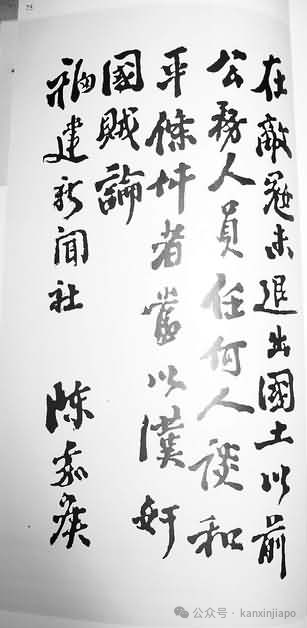 在敵寇未退出國土以前
公務人員任何人談和
平條件者當以漢奸
國賊論
福建新聞社　陳嘉庚
公众号 · kanxinjiapo